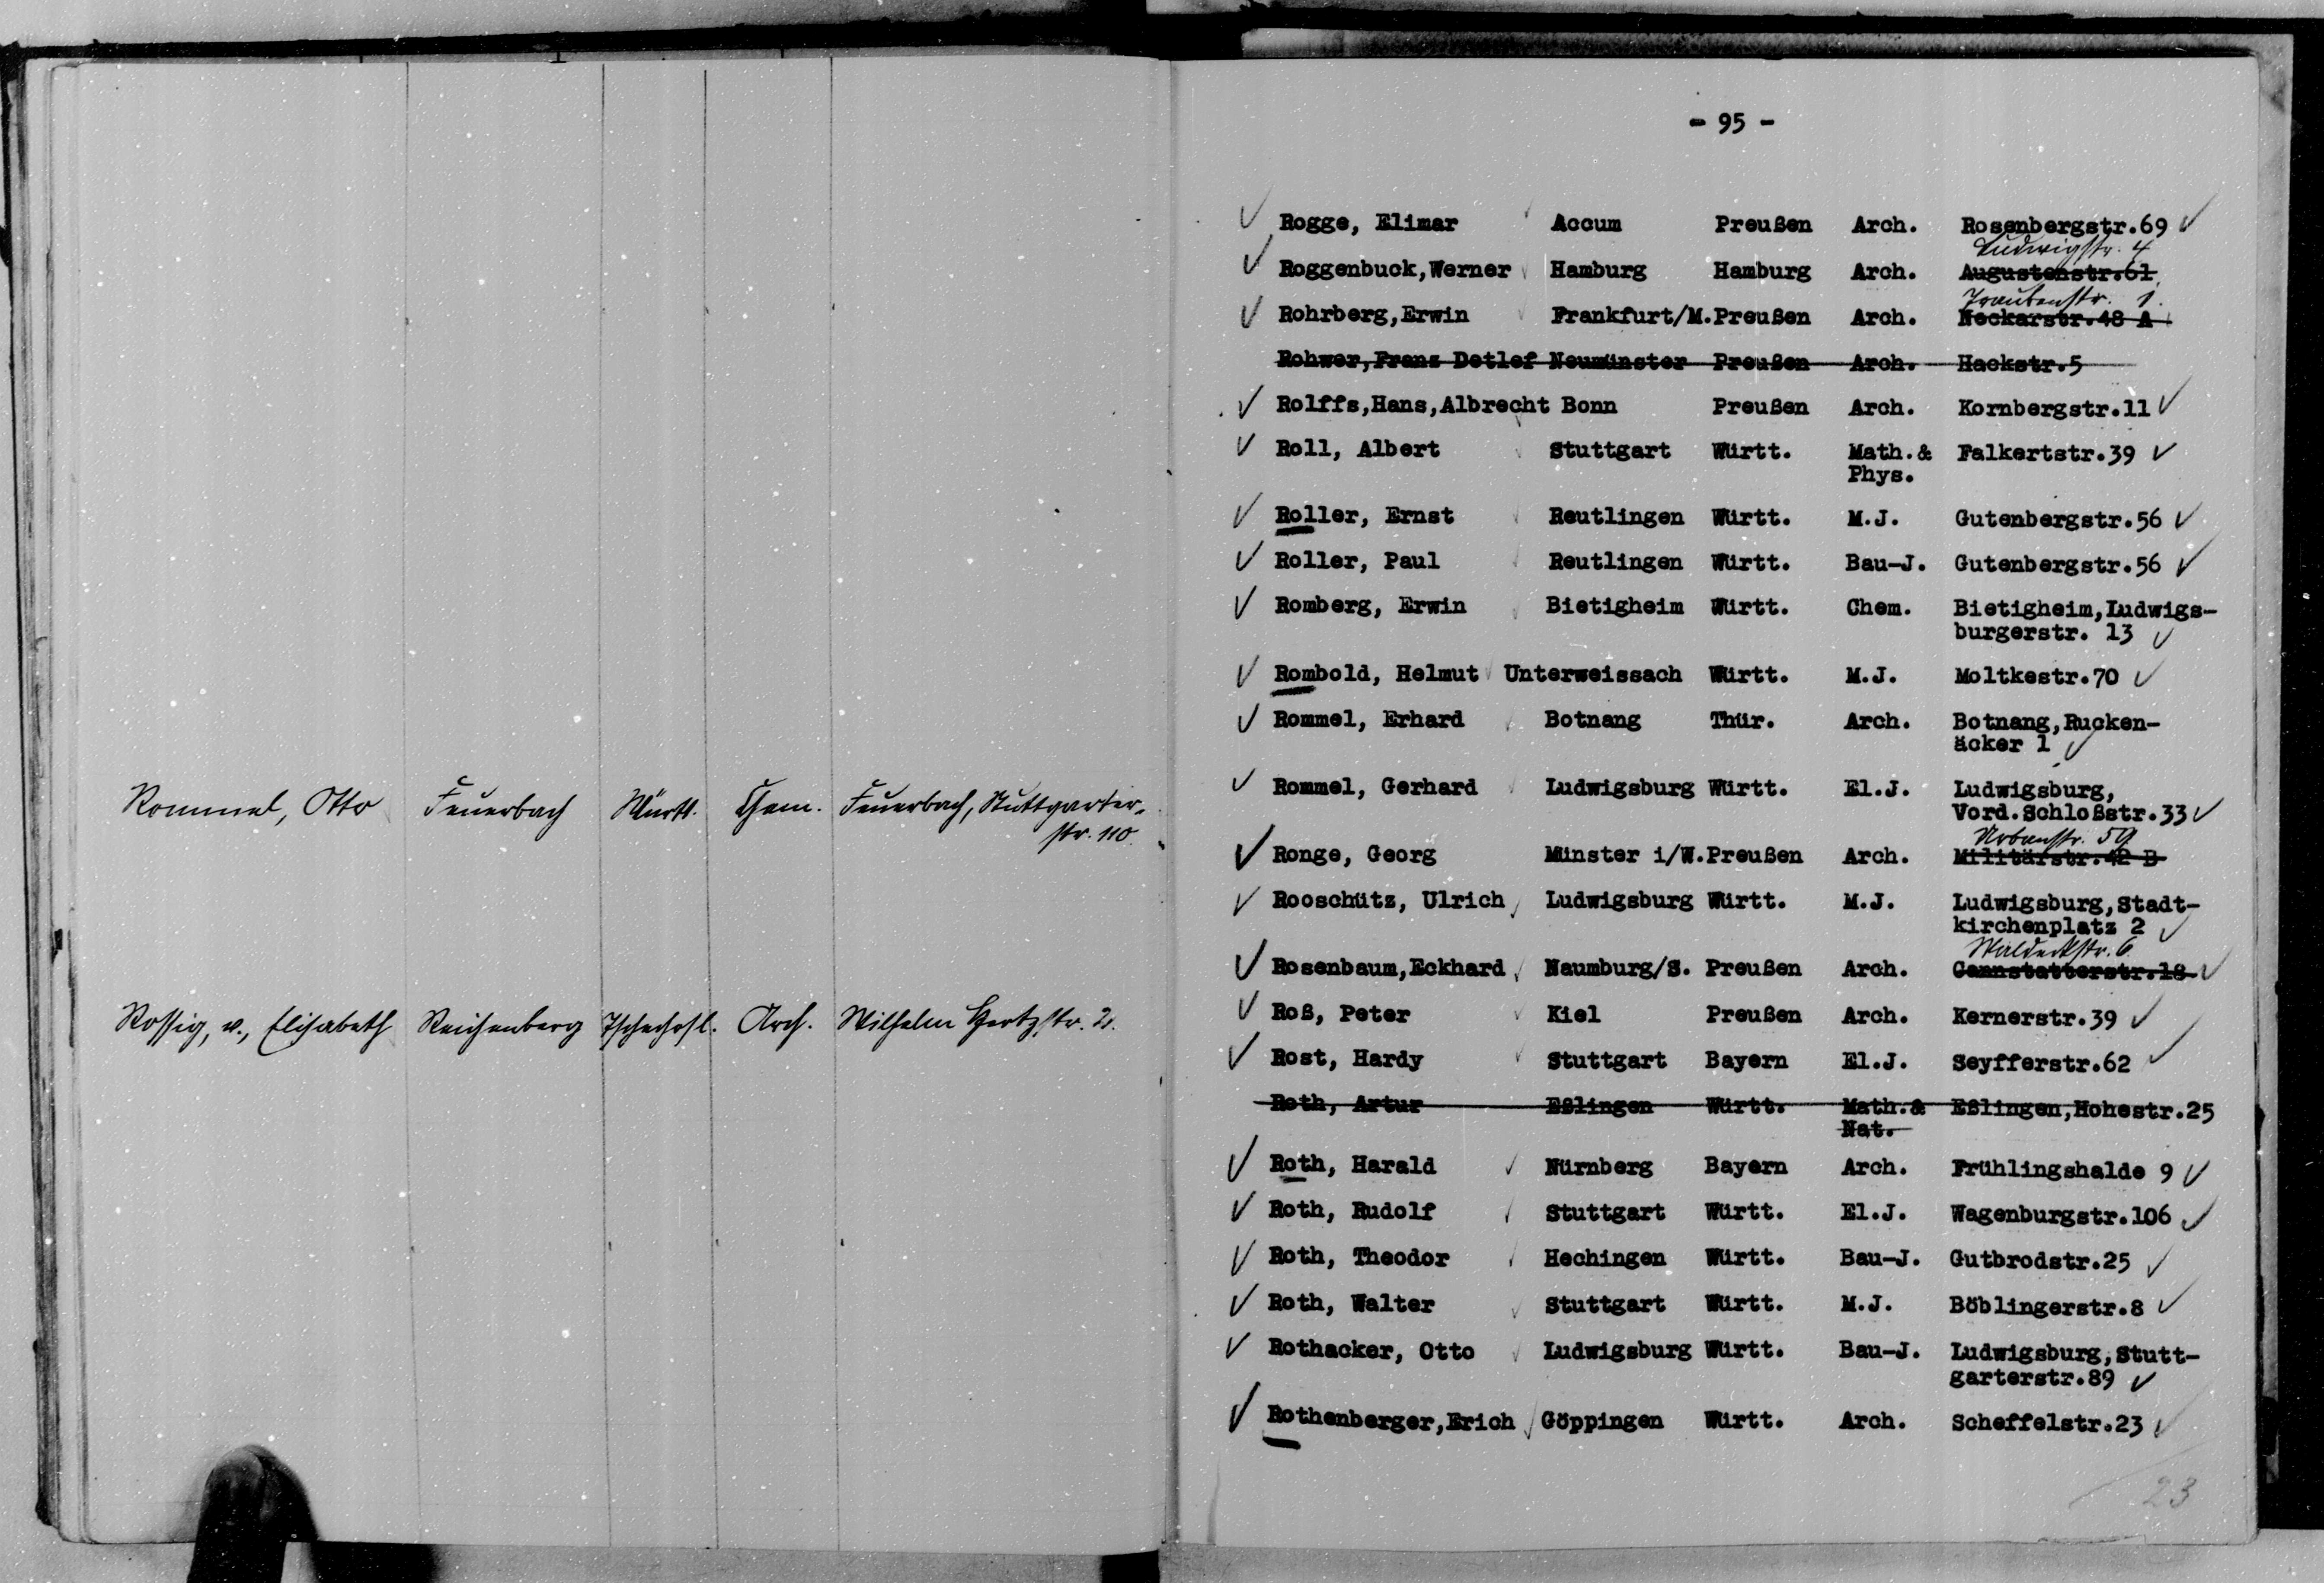 Rommel, Otto Feuerbach Württ. Chem. Feuerbach, Stuttgarter-
str. 110.
Rossig, v., Elisabeth Reichenberg Tschechosl. Arch. Wilhelm Hertzstr. 2.
- 95 -
Rogge, Elimar Accum Preußen Arch. Rosenbergstr.69
Ludwigstr. 4
Roggenbuck,Werner Hamburg Hamburg Arch. Augustenstr.61
Traubenstr. 1.
Rohrberg,Erwin Frankfurt/M.Preußen Arch. Neckarstr.48 A
Rohwer,Franz Detlef Neumünster Preußen Arch. Hackstr.5
Rolffs,Hans,Albrecht Bonn Preußen Arch. Kornbergstr.11
Roll, Albert Stuttgart Württ. Math.& Falkertstr.39
Phys.
Roller, Ernst Reutlingen Württ. M.J. Gutenbergstr.56
Roller, Paul Reutlingen Württ. Bau-J. Gutenbergstr.56
Romberg, Erwin Bietigheim Württ. Chem. Bietigheim,Ludwigs-
burgerstr. 13
Rombold, Helmut Unterweissach Württ. M.J. Moltkestr.70
Rommel, Erhard Botnang Thür. Arch. Botnang,Rucken-
äcker 1
Rommel, Gerhard Ludwigsburg Württ. El.J. Ludwigsburg,
Vord.Schloßstr.33
Urbanstr. 59
Ronge, Georg Münster i/W.Preußen Arch. Militärstr.42 B
Rooschütz, Ulrich Ludwigsburg Württ. M.J. Ludwigsburg,Stadt-
kirchenplatz 2
Waldeckstr. 6
Rosenbaum,Eckhard Naumburg/S. Preußen Arch. Cannstatterstr.18
Roß, Peter Kiel Preußen Arch. Kernerstr.39
Rost, Hardy Stuttgart Bayern El.J. Seyfferstr.62
Roth, Artur Eßlingen Württ. Math.& Eßlingen,Hohestr.25
Nat.
Roth, Harald Nürnberg Bayern Arch. Frühlingshalde 9
Roth, Rudolf Stuttgart Württ. El.J. Wagenburgstr.106
Roth, Theodor Hechingen Württ. Bau-J. Gutbrodstr.25
Roth, Walter Stuttgart Württ. M.J. Böblingerstr.8
Rothacker, Otto Ludwigsburg Württ. Bau-J. Ludwigsburg,Stutt-
garterstr.89
Rothenberger,Erich Göppingen Württ. Arch. Scheffelstr.23
23